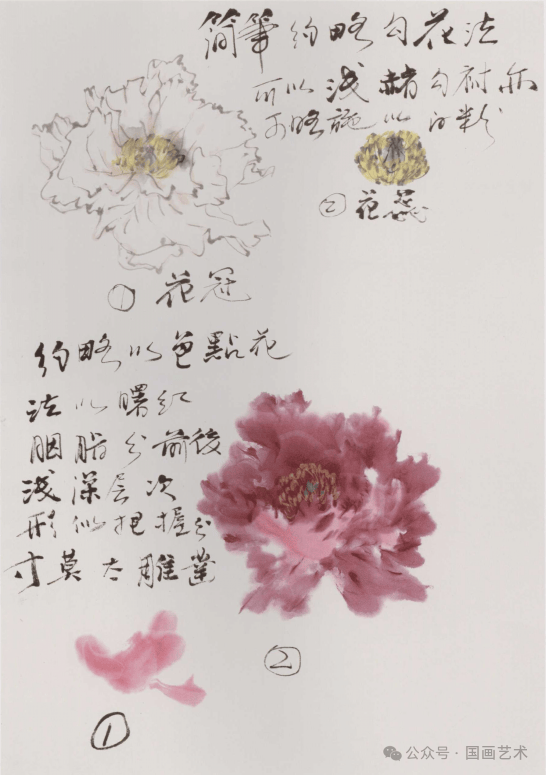 简笔约略勾花法
所以浅赭勾衬亦
可略施以白粉
② 花蕊
① 花冠
约略以色點花
法以曙红
胭脂分前後
浅深层次
形似把握分
寸莫太雕凿
②
①
公众号 · 国画艺术